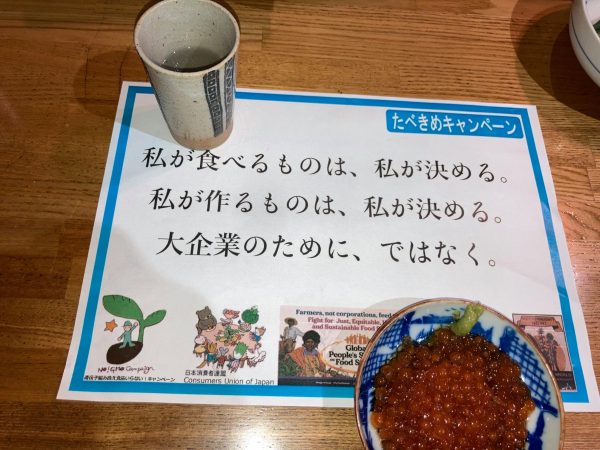 たべきめキャンペーン
私が食べるものは、私が決める。
私が作るものは、私が決める。
大企業のために、ではなく。
No! GMO Campaign
遺伝子組み換え食品いらない!キャンペーン
日本消費者連盟
Consumers Union of Japan
Farmers, not corporations, feed
Fight for Just, Equitable,
and Sustainable Food
Global
People's
Food